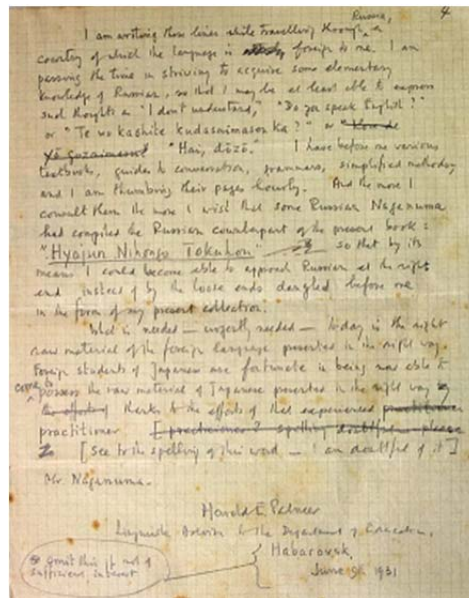 4
Russia,
I am writing these lines while travelling through a
country of which the language is foreign to me. I am
passing the time in striving to acquire some elementary
knowledge of Russian, so that I may be at least able to express
such thoughts as "I don't understand," "Do you speak English?"
or "Te wo kashite kudasaimasen ka?" or
Yō gozaimasu "Hai, dōzo." I have before me various
textbooks, guides to conversation, grammars, simplified methods
and I am thumbing their pages hourly. And the more I
consult them the more I wish that some Russian Naganuma
had compiled the Russian counterpart of the present book:
"Hyōjun Nihongo Tokuhon" so that by its
means I could become able to approach Russian at the right
end instead of by the loose ends dangled before me
in the form of my present collection.
What is needed — urgently needed — today is the right
raw material of the foreign language presented in the right way.
Foreign students of Japanese are fortunate in being now able to
come to
possess the raw material of Japanese presented in the right way
thanks to the efforts of that experienced practitioner
practitioner [practicioner? spelling doubtful please
[see to the spelling of this word — I am doubtful of it]
Mr. Naganuma.
Harold E. Palmer
Linguistic Adviser to the Department of Education,
Habarovsk,
June 9, 1931
omit this if not of
sufficient interest